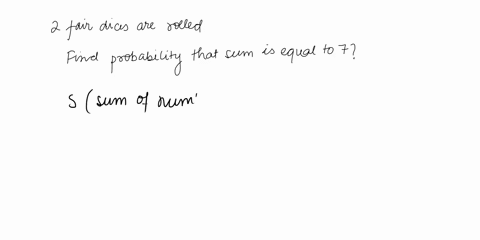 2 fair dices are rolled
Find probability that sum is equal to 7?
S (sum of num'